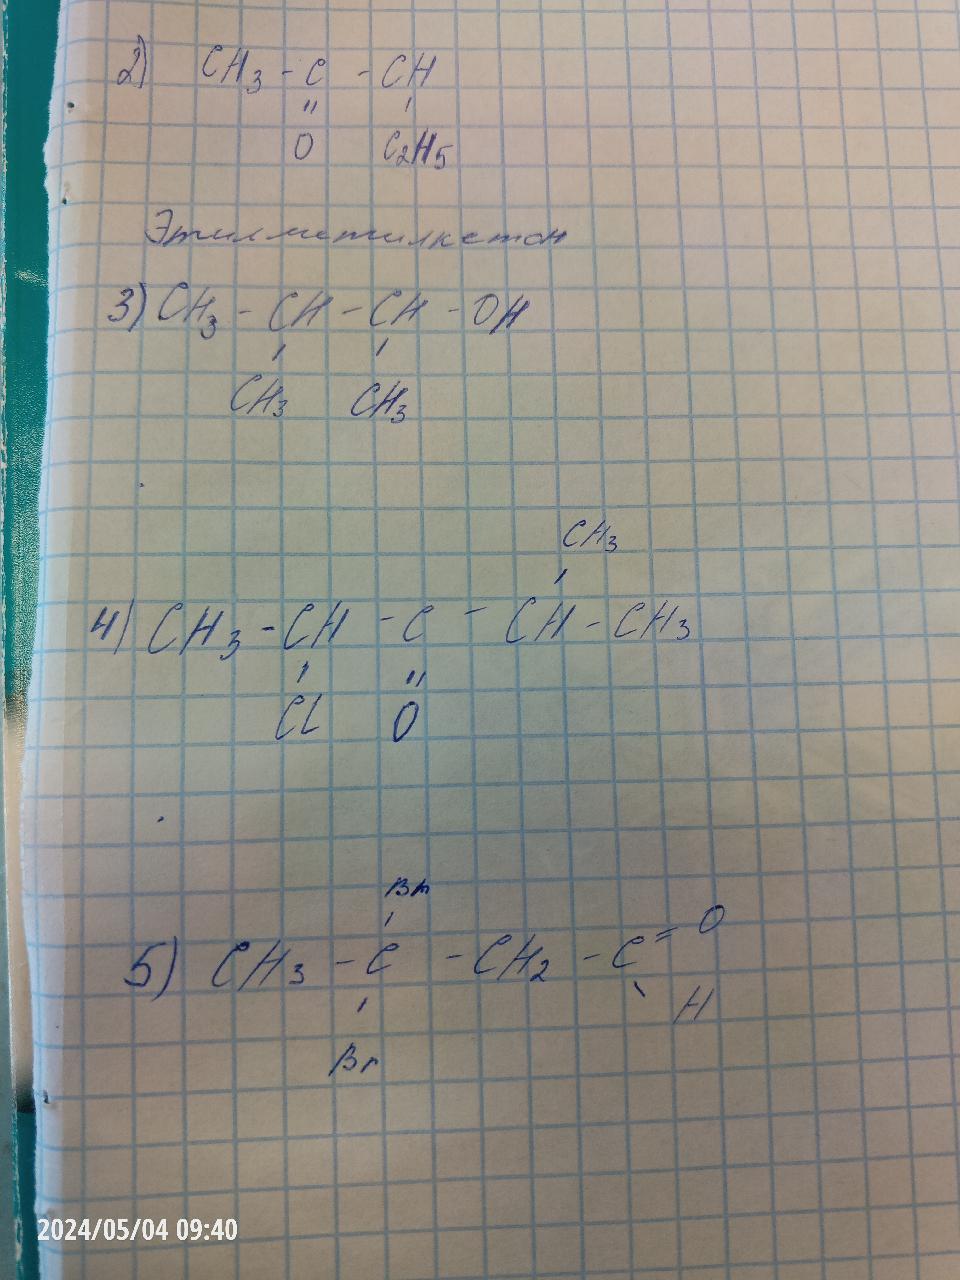 2) CH3 - C - CH
" '
O C2H5
Этилметилкетон
3) CH3 - CH - CH - OH
' '
CH3 CH3
CH3
'
4) CH3 - CH - C - CH - CH3
' "
Cl O
Br
'
5) CH3 - C - CH2 - C = O
' \ H
Br
2024/05/04 09:40